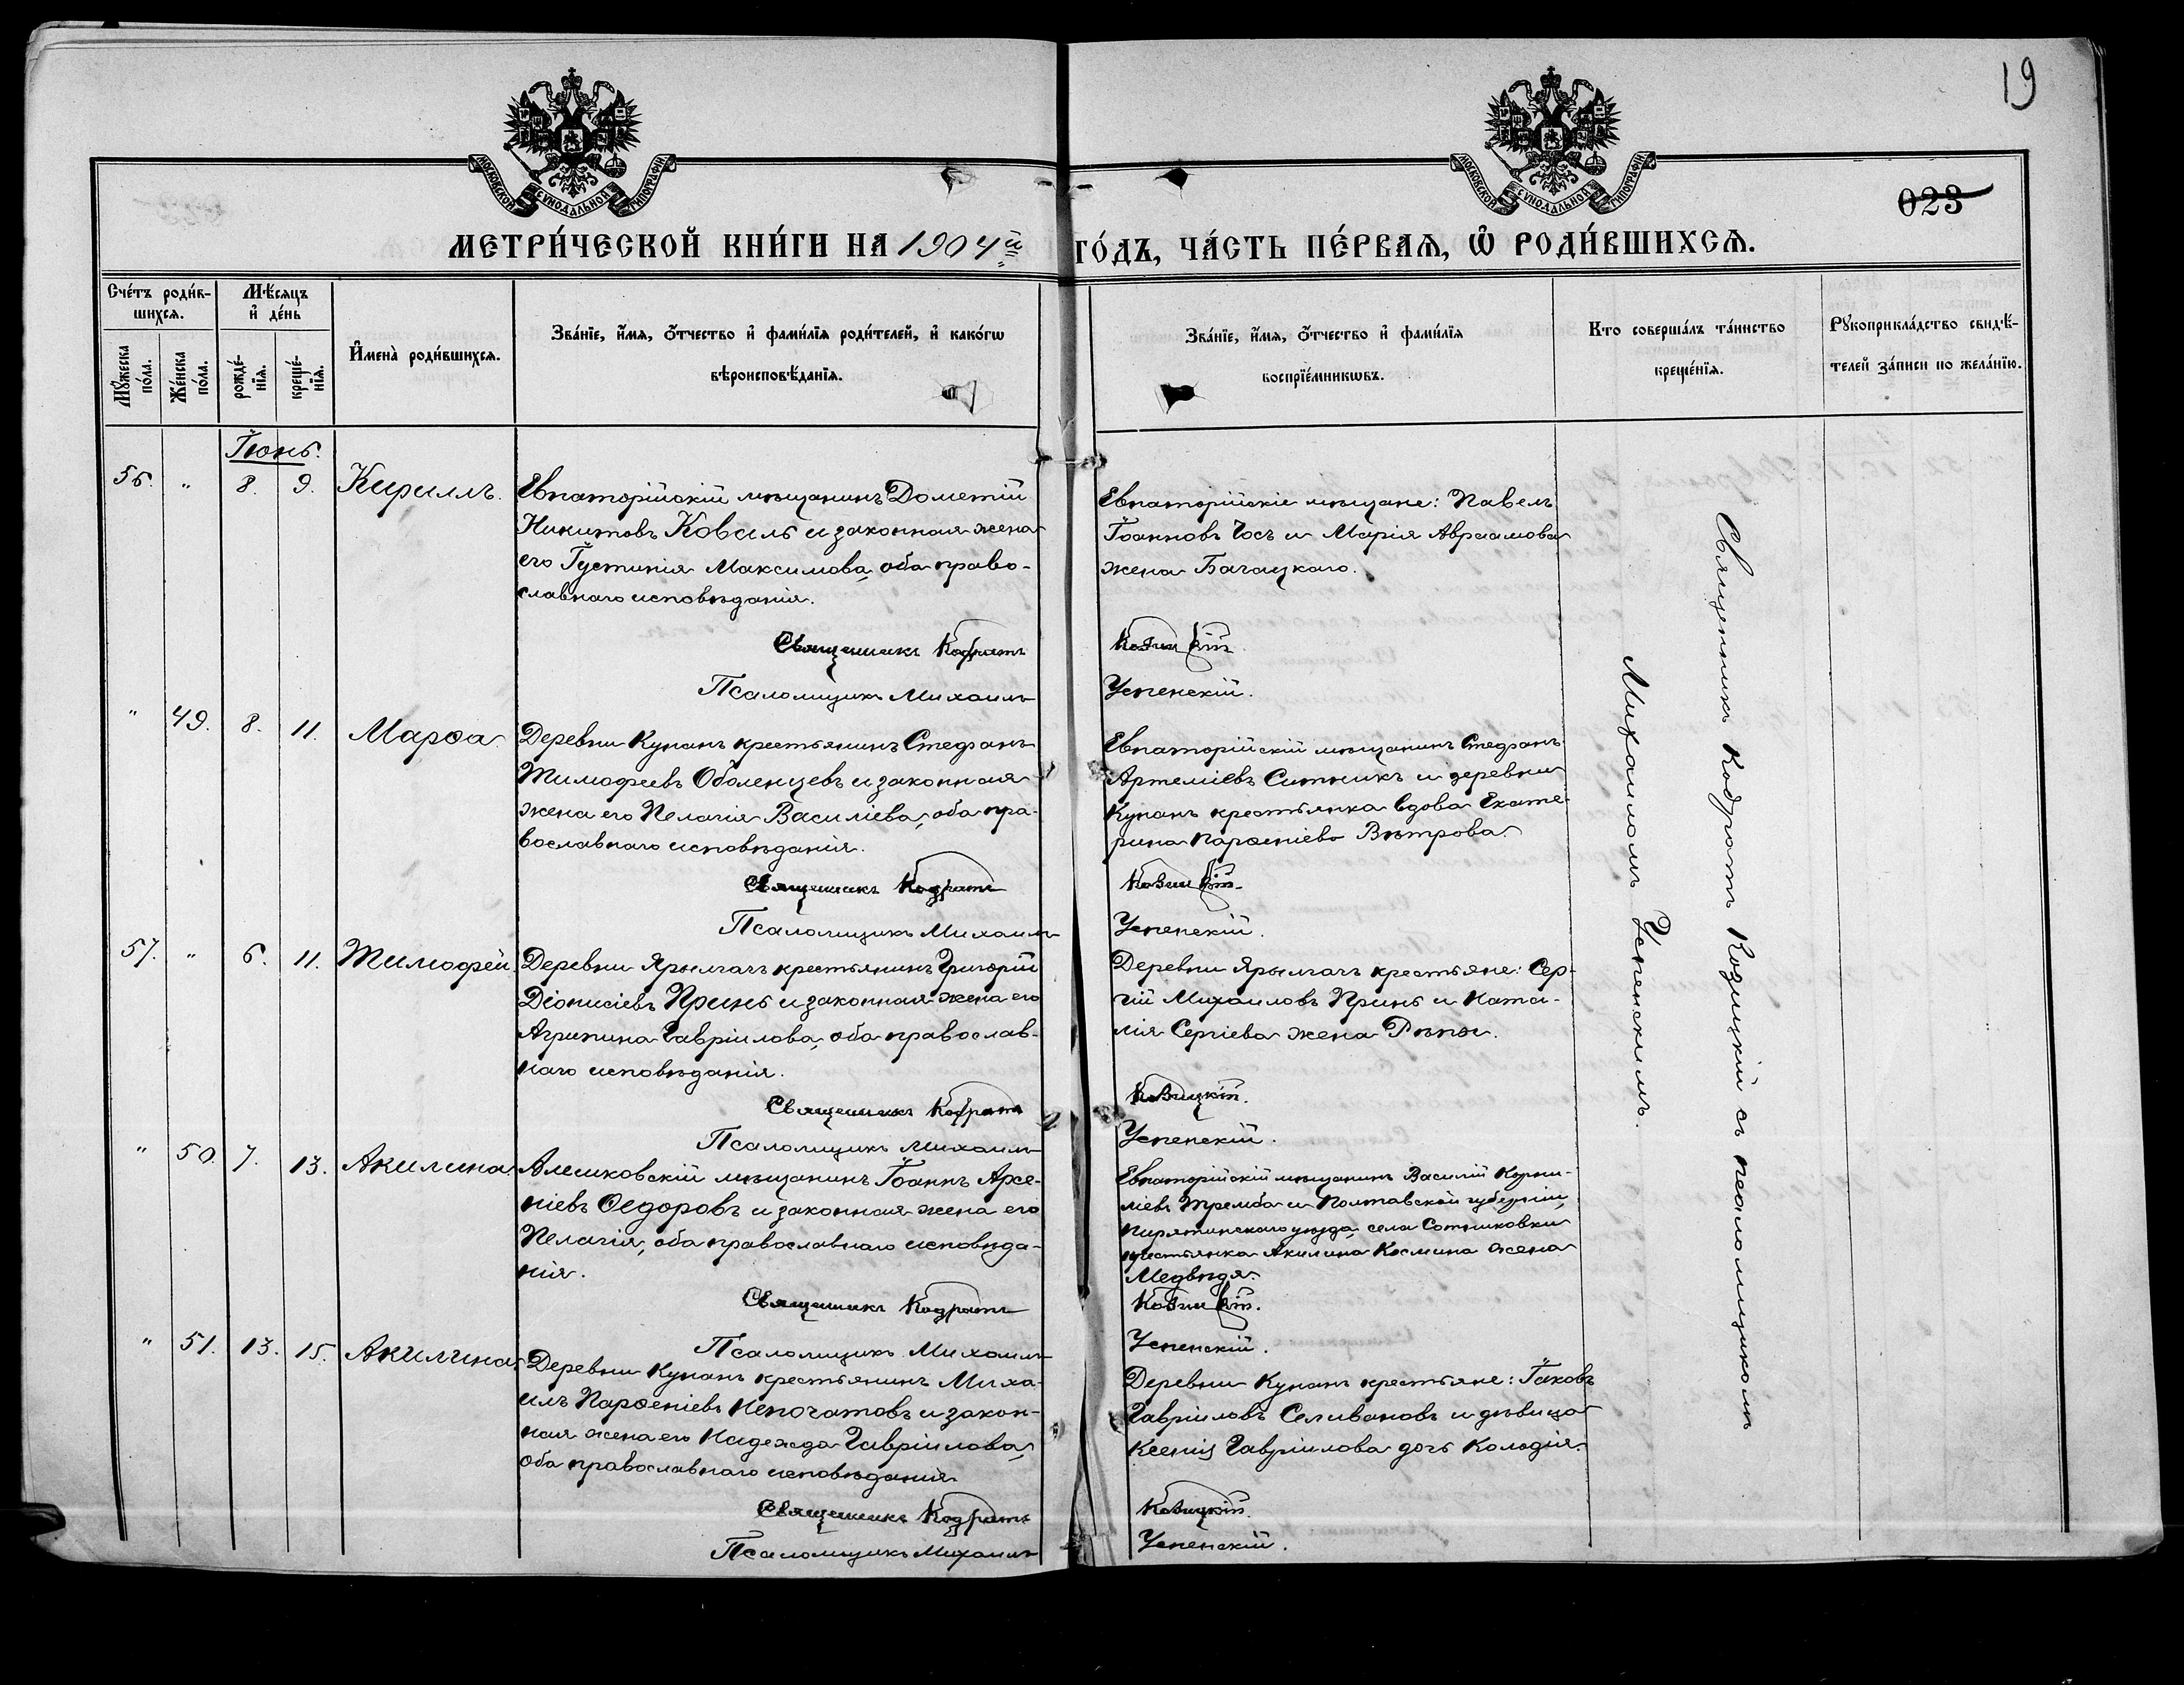 19
023
МОСКОВСКОЙ СѴНОДАЛЬНОЙ ТИПОГРАФІИ
МОСКОВСКОЙ СѴНОДАЛЬНОЙ ТИПОГРАФІИ
МЕТРИ́ЧЕСКОЙ КНИ́ГИ НА 1904й ГО́ДЪ, ЧА́СТЬ ПЕ́РВАЯ, Ѡ҆ РОДИ́ВШИХСЯ.
Сче́тъ роди́в-
шихся.
Мꙋ́жеска
по́ла.
Же́нска
по́ла.
Мѣ́сяцъ
и҆ де́нь
рожде́-
нїя.
креще́-
нїя.
И҆мена̀ роди́вшихся.
Зва́нїе, и҆́мя, ѻ҆́тчество и҆ фами́лїя роди́телей, и҆ како́гѡ
вѣроисповѣ́данїя.
Зва́нїе, и҆́мя, ѻ҆́тчество и҆ фами́лїя
воспрїе́мникѡвъ.
Кто соверша́лъ та́инство
креще́нїя.
Рꙋкоприкла́дство свидѣ́-
телей за́писи по жела́нїю.
Іюнь.
56. " 8. 9. Кириллъ.
Евпаторійскій мѣщанинъ Дометій
Никитовъ Коваль и законная жена
его Іустинія Максимова, оба право-
славнаго исповѣданія.
Священникъ Кодратъ
Псаломщикъ Михаилъ
Евпаторійскіе мѣщане: Павелъ
Іоанновъ Гось и Марія Авраамова
жена Багацкаго.
Козицкій
Успенскій.
" 49. 8. 11. Марѳа.
Деревни Кунанъ крестьянинъ Стефанъ
Тимофеевъ Оболенцевъ и законная
жена его Пелагія Василіева, оба пра-
вославнаго исповѣданія.
Священникъ Кодратъ
Псаломщикъ Михаилъ
Евпаторійскій мѣщанинъ Стефанъ
Артеміевъ Ситникъ и деревни
Кунанъ крестьянка вдова Екате-
рина Парѳеніева Вѣтрова.
Козицкій.
Успенскій.
57. " 6. 11. Тимофей.
Деревни Ярылгачъ крестьянинъ Григорій
Діонисіевъ Принь и законная жена его
Агрипина Гавріилова, оба православ-
наго исповѣданія.
Священникъ Кодратъ
Псаломщикъ Михаилъ
Деревни Ярылгачъ крестьяне: Сер-
гій Михаиловъ Принь и Ната-
лія Сергіева жена Рѣпы.
Козицкій.
Успенскій.
" 50. 7. 13. Акилина.
Алешковскій мѣщанинъ Іоаннъ Арсе-
ніевъ Ѳедоровъ и законная жена его
Пелагія, оба православнаго исповѣда-
нія.
Священникъ Кодратъ
Псаломщикъ Михаилъ
Евпаторійскій мѣщанинъ Василій Корни-
ліевъ Тремба и Полтавской губерніи,
Пирятинскаго уѣзда, села Сотниковки
крестьянка Акилина Космина жена
Медвѣдя.
Козицкій.
Успенскій.
" 51. 13. 15. Акилина.
Деревни Кунанъ крестьянинъ Миха-
илъ Парѳеніевъ Непочатовъ и закон-
ная жена его Надежда Гавріилова,
оба православнаго исповѣданія
Священникъ Кодратъ
Псаломщикъ Михаилъ
Деревни Кунанъ крестьяне: Іаковъ
Гавріиловъ Селивановъ и дѣвица
Ксенія Гавріилова дочь Колодія.
Козицкій.
Успенскій.
Священникъ Кодратъ Козицкій съ псаломщикомъ
Михаиломъ Успенскимъ.